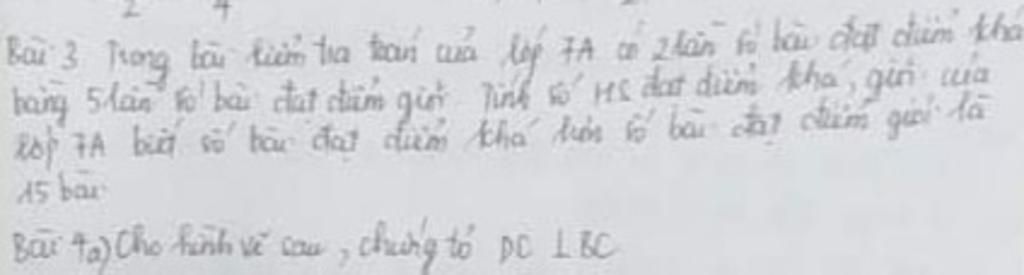 2 4
Bài 3 Trong bài kiểm tra toán của lớp 7A có 2 lần số bài đạt điểm khá
bằng 5 lần số bài đạt điểm giỏi Tính số HS đạt điểm khá, giỏi của
lớp 7A biết số bài đạt điểm khá hơn số bài đạt điểm giỏi là
15 bài
Bài 4a) Cho hình vẽ sau, chứng tỏ DC ⊥ BC